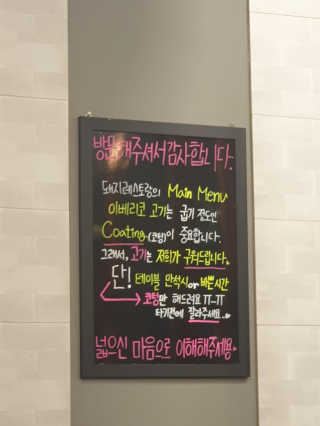 방문해주셔서감사합니다.
돼지레스토랑의 Main Menu
이베리코 고기는 굽기 전도면
Coating(코팅)이 중요합니다.
그래서, 고기는 저희가 구워드립니다.
단! 테이블 만석시or 바쁜시간
코팅만 해드려요 ㅠ-ㅠ
타기전에 잘라주세요..
넓으신 마음으로 이해해주세용